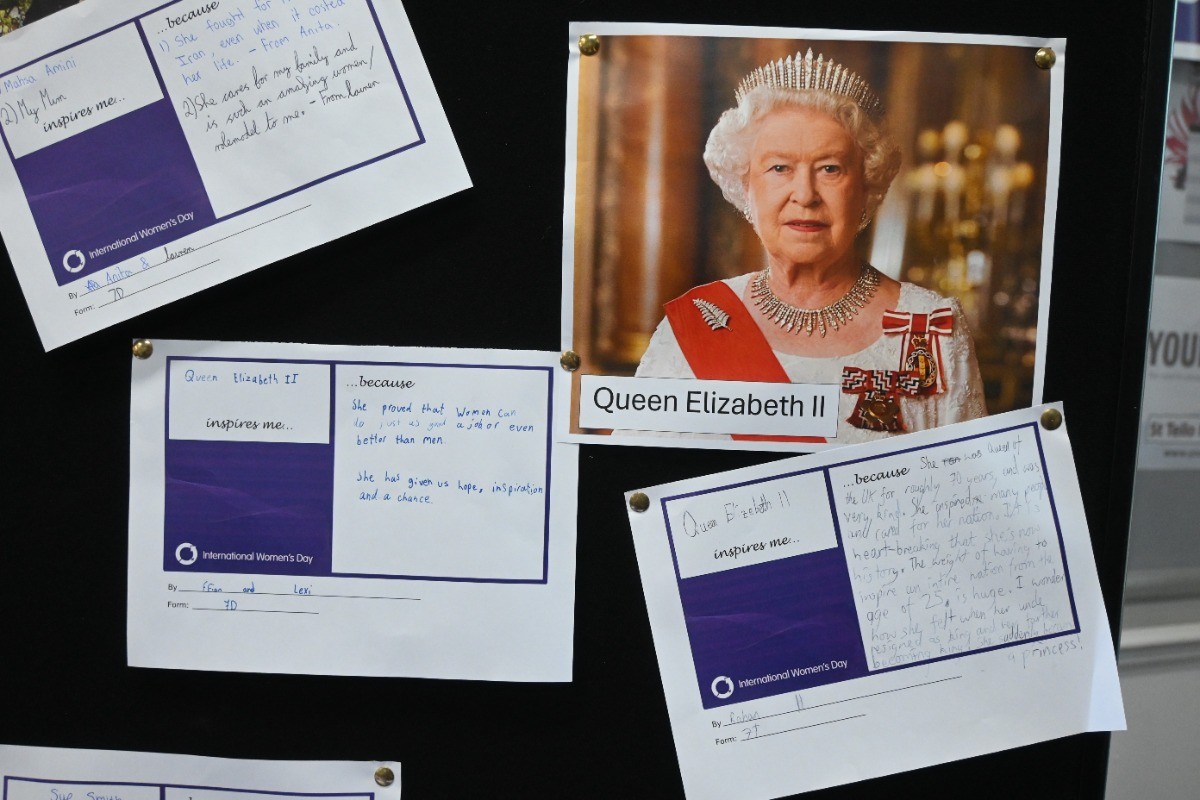 Mahsa Amini
2) My Mum
inspires me...
...because
1) She fought for
Iran, even when it costed
her life. - From Anita.
2) She cares for my family and
is such an amazing women/
rolemodel to me. - From lauren
International Women's Day
By Anita & lauren
Form: 7D
Queen Elizabeth II
Queen Elizabeth II
inspires me...
...because
She proved that Women can
do just as good a job or even
better than men.
She has given us hope, inspiration
and a chance.
International Women's Day
By ffion and Lexi
Form: 7D
Queen Elizebeth II
inspires me...
...because She ran was Queen of
the UK for roughly 70 years, and was
very kind. She inspired many people
and cared for her nation, It's
heart-breaking that she's now
history. The weight of having to
inspire an intire nation from the
age of 25, is huge. I wonder
how she felt when her uncle
resigned as king and her father
becoming king! she suddenly became
a princess!
International Women's Day
By Rohan
Form: 7T
Sue Smith
YOUR
St Teilo
www.